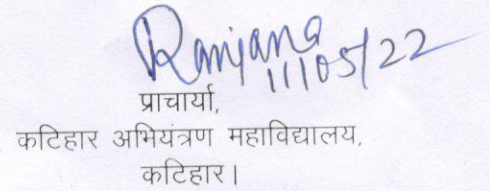 Ranjana
11/05/22
प्राचार्या,
कटिहार अभियंत्रण महाविद्यालय,
कटिहार।